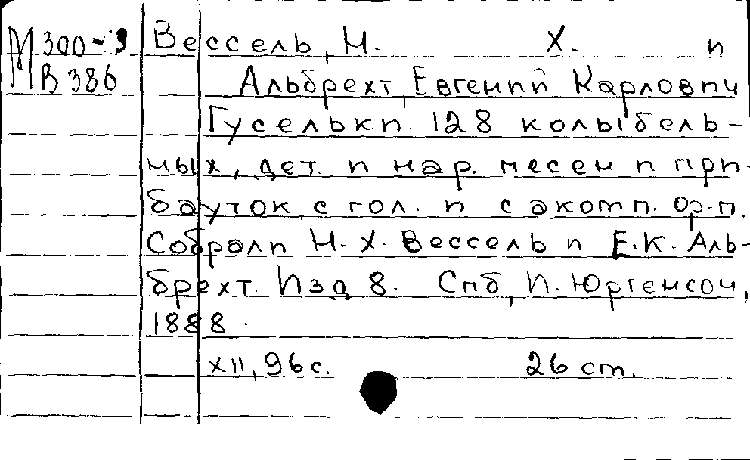 М 300-3 Вессель, Н. Х. и
В 386 Альбрехт, Евгений Карлович
Гусельки. 128 колыбель-
ных, дет. и нар. песен и при-
бауток с гол. и с акомп. фр.-п.
Собрали Н. Х. Вессель и Е. К. Аль-
брехт. Изд 8. Спб, П. Юргенсон,
1888.
XII, 96 с. 26 cm.